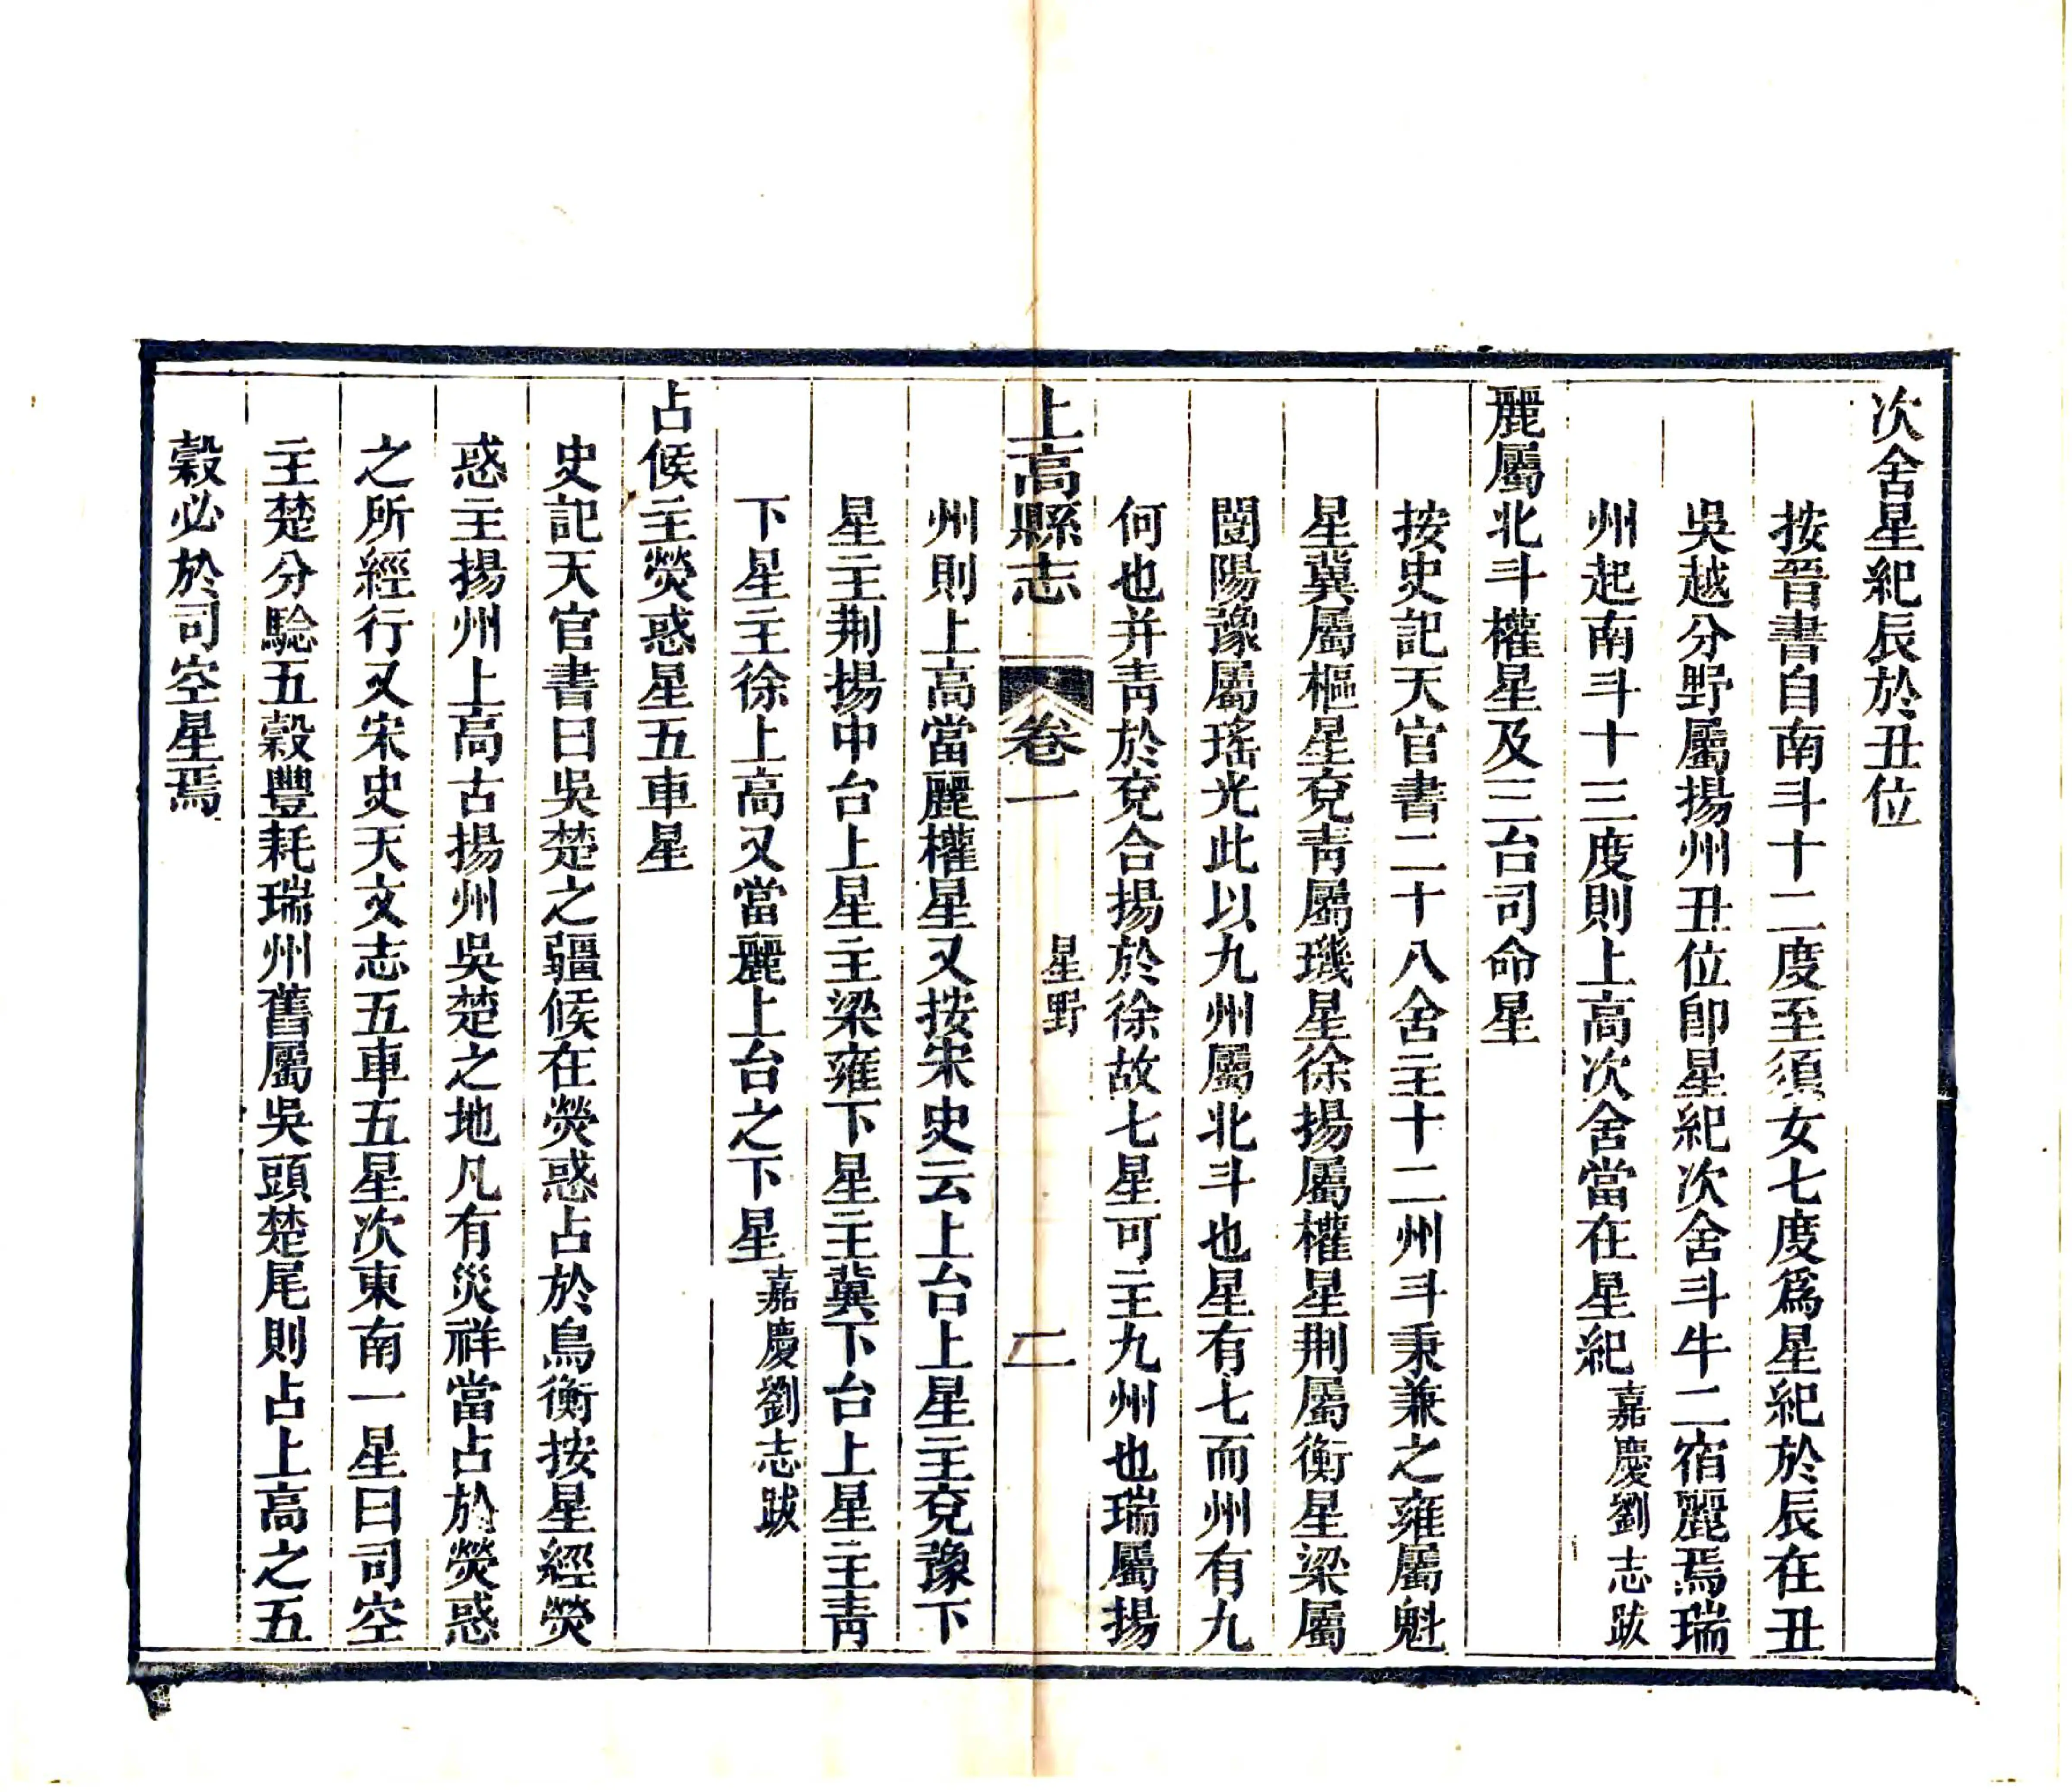 次舍星紀辰於丑位
按晉書自南斗十二度至須女七度爲星紀於辰在丑
吳越分野屬揚州丑位卽星紀次舍斗牛二宿麗焉瑞
州起南斗十三度則上高次舍當在星紀嘉慶劉志跋
麗屬北斗權星及三台司命星
按史記天官書二十八舍主十二州斗秉兼之雍屬魁
星冀屬樞星兗靑屬璣星徐揚屬權星荆屬衡星梁屬
闓陽豫屬瑤光此以九州屬北斗也星有七而州有九
何也并靑於兗合揚於徐故七星可主九州也瑞屬揚
上高縣志 卷一 星野 二
州則上高當麗權星又按宋史云上台上星主兗豫下
星主荆揚中台上星主梁雍下星主冀下台上星主靑
下星主徐上高又當麗上台之下星嘉慶劉志跋
占候主熒惑星五車星
史記天官書曰吳楚之疆候在熒惑占於鳥衡按星經熒
惑主揚州上高古揚州吳楚之地凡有災祥當占於熒惑
之所經行又宋史天文志五車五星次東南一星曰司空
主楚分騐五穀豐耗瑞州舊屬吳頭楚尾則占上高之五
穀必於司空星焉